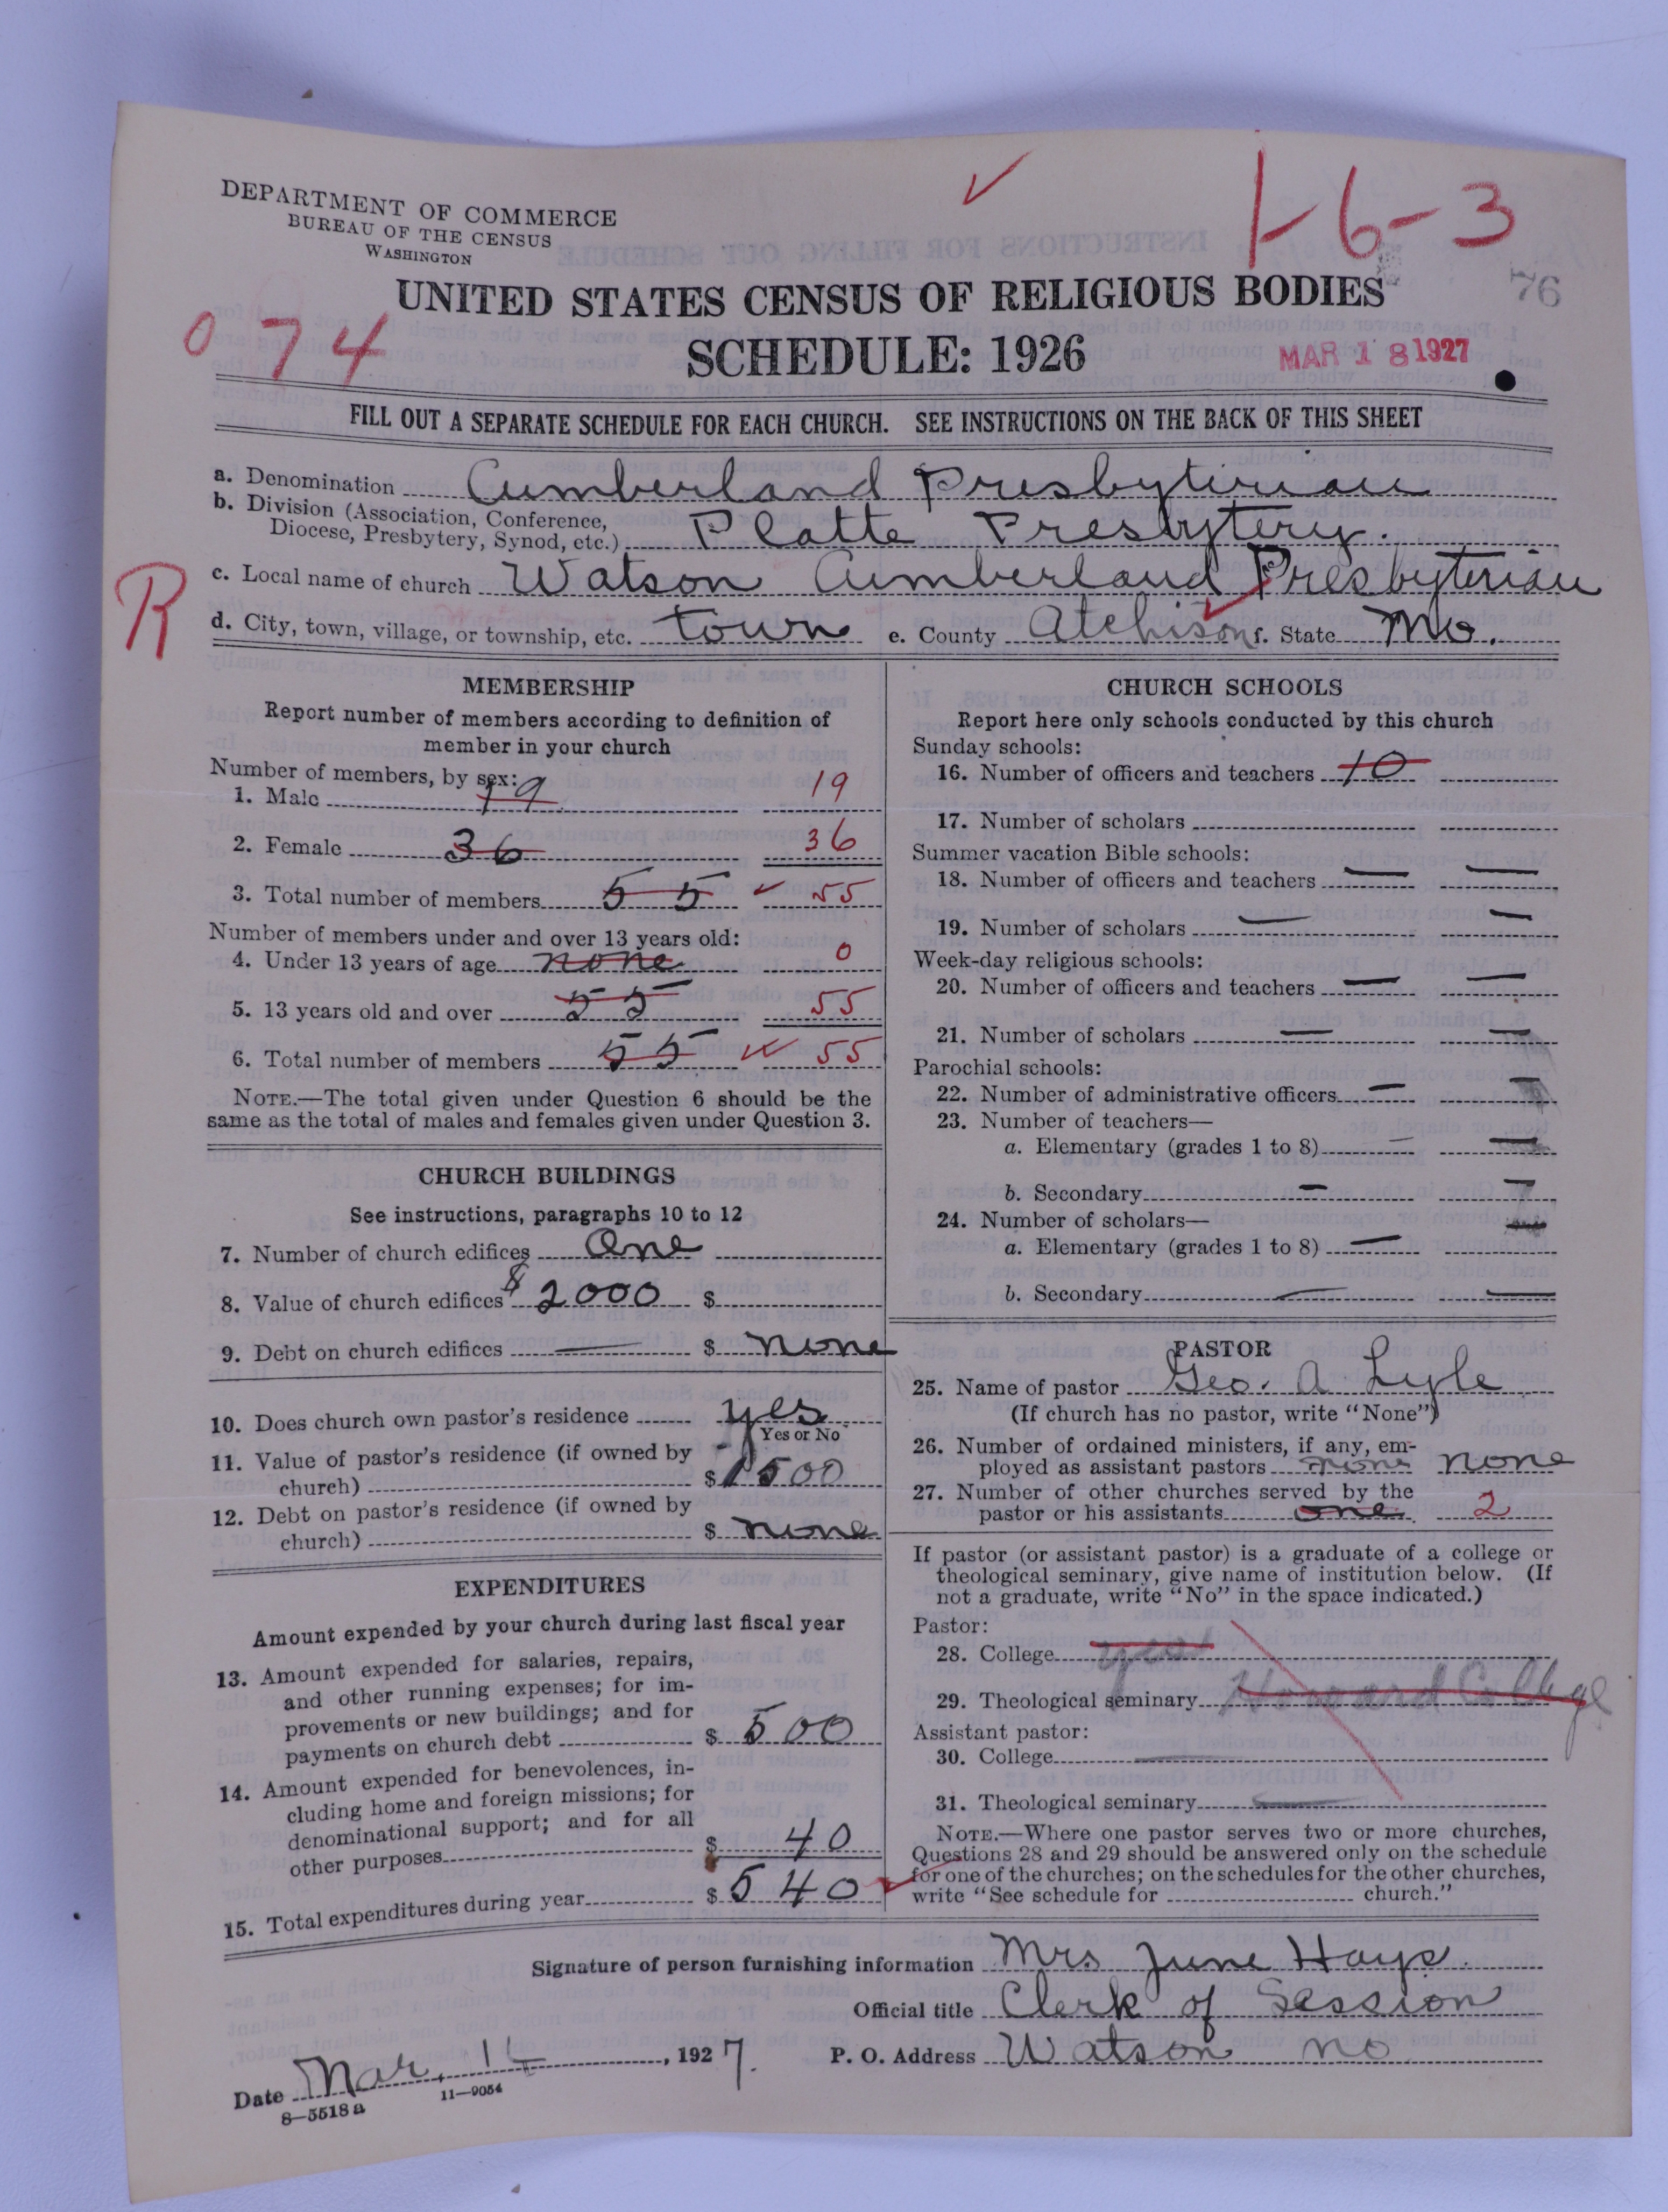 DEPARTMENT OF COMMERCE
BUREAU OF THE CENSUS
WASHINGTON
1-6-3
76
UNITED STATES CENSUS OF RELIGIOUS BODIES
SCHEDULE: 1926
074
MAR 18 1927
FILL OUT A SEPARATE SCHEDULE FOR EACH CHURCH. SEE INSTRUCTIONS ON THE BACK OF THIS SHEET
a. Denomination Cumberland Presbyterian
b. Division (Association, Conference,
Diocese, Presbytery, Synod, etc.) Platte Presbytery.
R
c. Local name of church Watson Cumberland Presbyterian
d. City, town, village, or township, etc. town e. County Atchison f. State Mo.
MEMBERSHIP
Report number of members according to definition of
member in your church
Number of members, by sex:
1. Male 19 19
2. Female 36 36
3. Total number of members 55 55
Number of members under and over 13 years old:
4. Under 13 years of age none 0
5. 13 years old and over 55 55
6. Total number of members 55 55
NOTE.—The total given under Question 6 should be the
same as the total of males and females given under Question 3.
CHURCH BUILDINGS
See instructions, paragraphs 10 to 12
7. Number of church edifices One
8. Value of church edifices $ 2000 $
9. Debt on church edifices — $ none
10. Does church own pastor's residence yes
Yes or No
11. Value of pastor's residence (if owned by
church) $ 1500
12. Debt on pastor's residence (if owned by
church) $ none
EXPENDITURES
Amount expended by your church during last fiscal year
13. Amount expended for salaries, repairs,
and other running expenses; for im-
provements or new buildings; and for
payments on church debt $ 500
14. Amount expended for benevolences, in-
cluding home and foreign missions; for
denominational support; and for all
other purposes $ 40
15. Total expenditures during year $ 540
CHURCH SCHOOLS
Report here only schools conducted by this church
Sunday schools:
16. Number of officers and teachers 10
17. Number of scholars
Summer vacation Bible schools:
18. Number of officers and teachers — —
19. Number of scholars — —
Week-day religious schools:
20. Number of officers and teachers — —
21. Number of scholars — —
Parochial schools:
22. Number of administrative officers — —
23. Number of teachers—
a. Elementary (grades 1 to 8) — —
b. Secondary — —
24. Number of scholars—
a. Elementary (grades 1 to 8) — —
b. Secondary — —
PASTOR
25. Name of pastor Geo. A Lyle
(If church has no pastor, write "None")
26. Number of ordained ministers, if any, em-
ployed as assistant pastors none none
27. Number of other churches served by the
pastor or his assistants one 2
If pastor (or assistant pastor) is a graduate of a college or
theological seminary, give name of institution below. (If
not a graduate, write "No" in the space indicated.)
Pastor:
28. College yes
29. Theological seminary Howard College
Assistant pastor:
30. College —
31. Theological seminary —
NOTE.—Where one pastor serves two or more churches,
Questions 28 and 29 should be answered only on the schedule
for one of the churches; on the schedules for the other churches,
write "See schedule for church."
Signature of person furnishing information Mrs June Hays.
Official title Clerk of Session
Date Mar. , 1927. P. O. Address Watson Mo
8—5518 a 11—9054